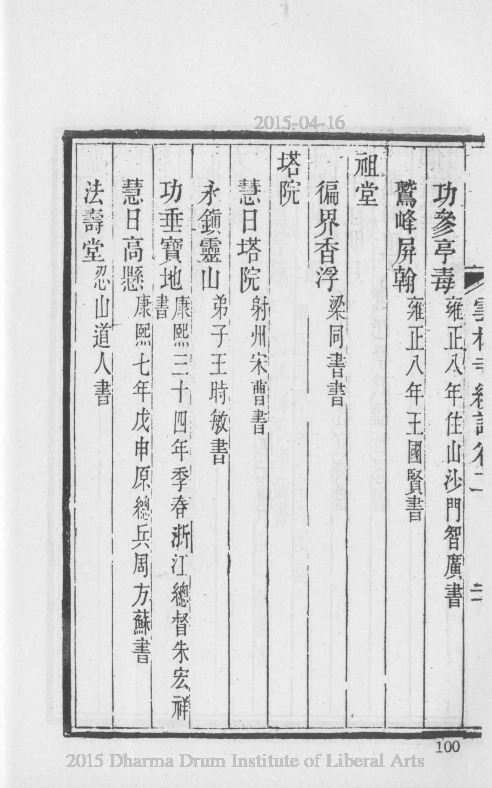 2015-04-16
雲林寺續誌卷二
功參亭毒雍正八年住山沙門智廣書
鷲峰屏翰雍正八年王國賢書
祖堂
徧界香浮梁同書書
塔院
慧日塔院射州宋曹書
永鎮靈山弟子王時敏書
功垂寶地康熙三十四年季春浙江總督朱宏祥書
慧日高懸康熙七年戊申原總兵周方蘇書
法壽堂忍山道人書
100
2015 Dharma Drum Institute of Liberal Arts